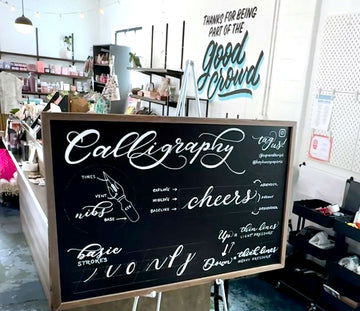 THANKS FOR BEING
PART OF THE
Good
Crowd
Calligraphy
tag
us!
TINES
VENT
nibs
BASE
CAPLINE →
MIDLINE →
BASELINE →
cheers
ASCENDER
DESCENDER
basic
STROKES
Up = thin lines
LIGHT PRESSURE
Down = thick lines
HEAVY PRESSURE